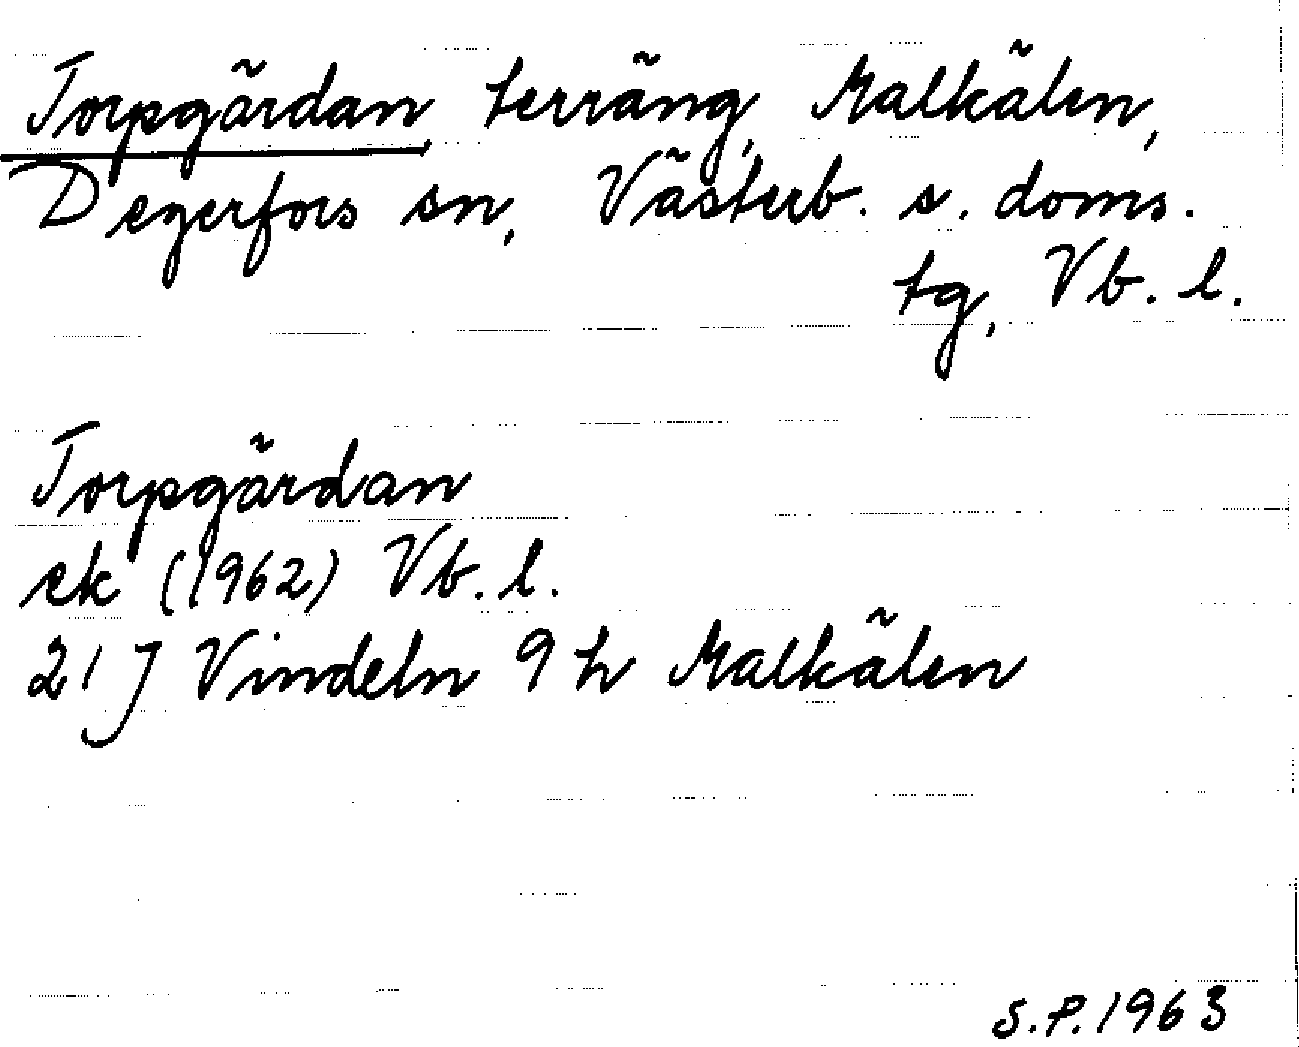 Torpgärdan, terräng, Malkälen,
Degerfors sn, Västerb. s. doms.
tg, Vb. l.
Torpgärdan
ek (1962) Vb. l.
21 J Vindeln 9 h Malkälen
S.P. 1963